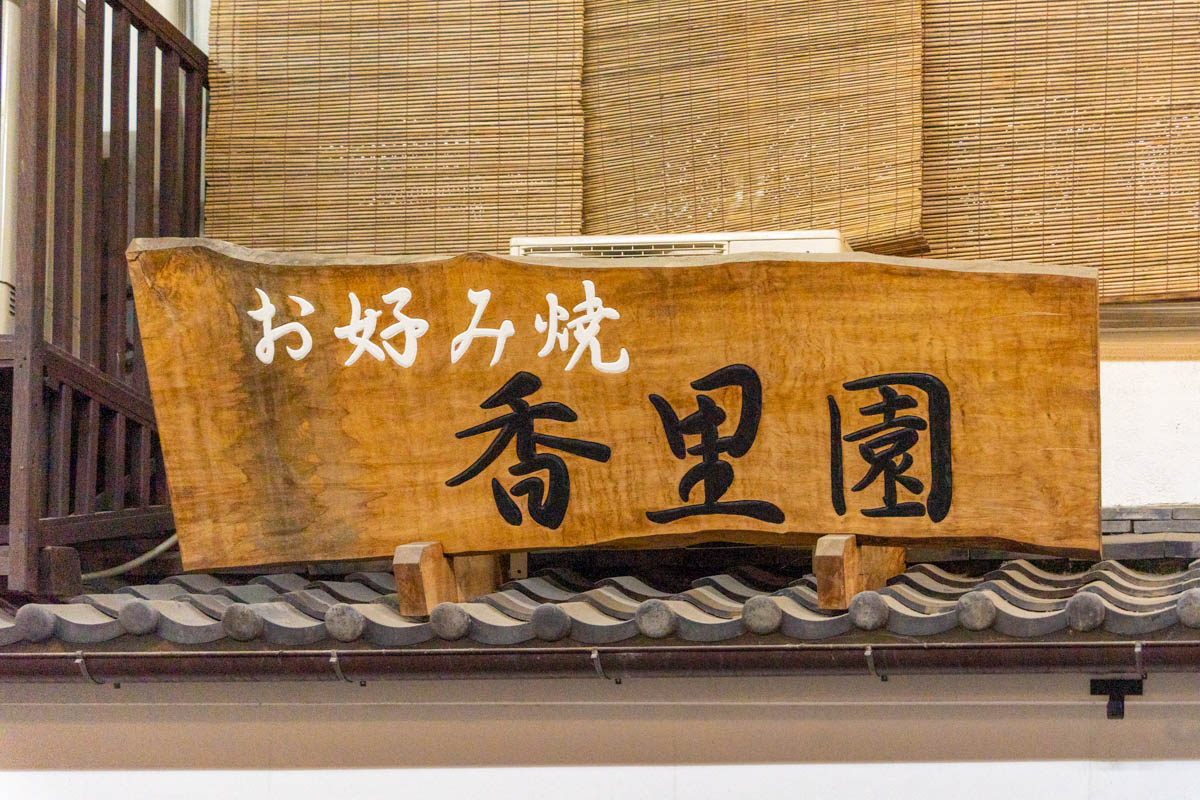 お好み焼
香里園